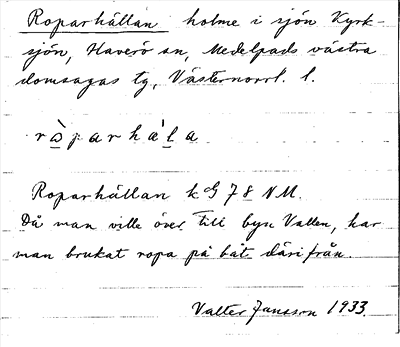 Roparhällan holme i sjön Kyrk-
sjön, Haverö sn, Medelpads västra
domsagas tg, Västernorrl. l.
ròparhàla
Roparhällan k G 78 NM.
Då man ville över till byn Vallen, har
man brukat ropa på båt därifrån.
Valter Jansson 1933.